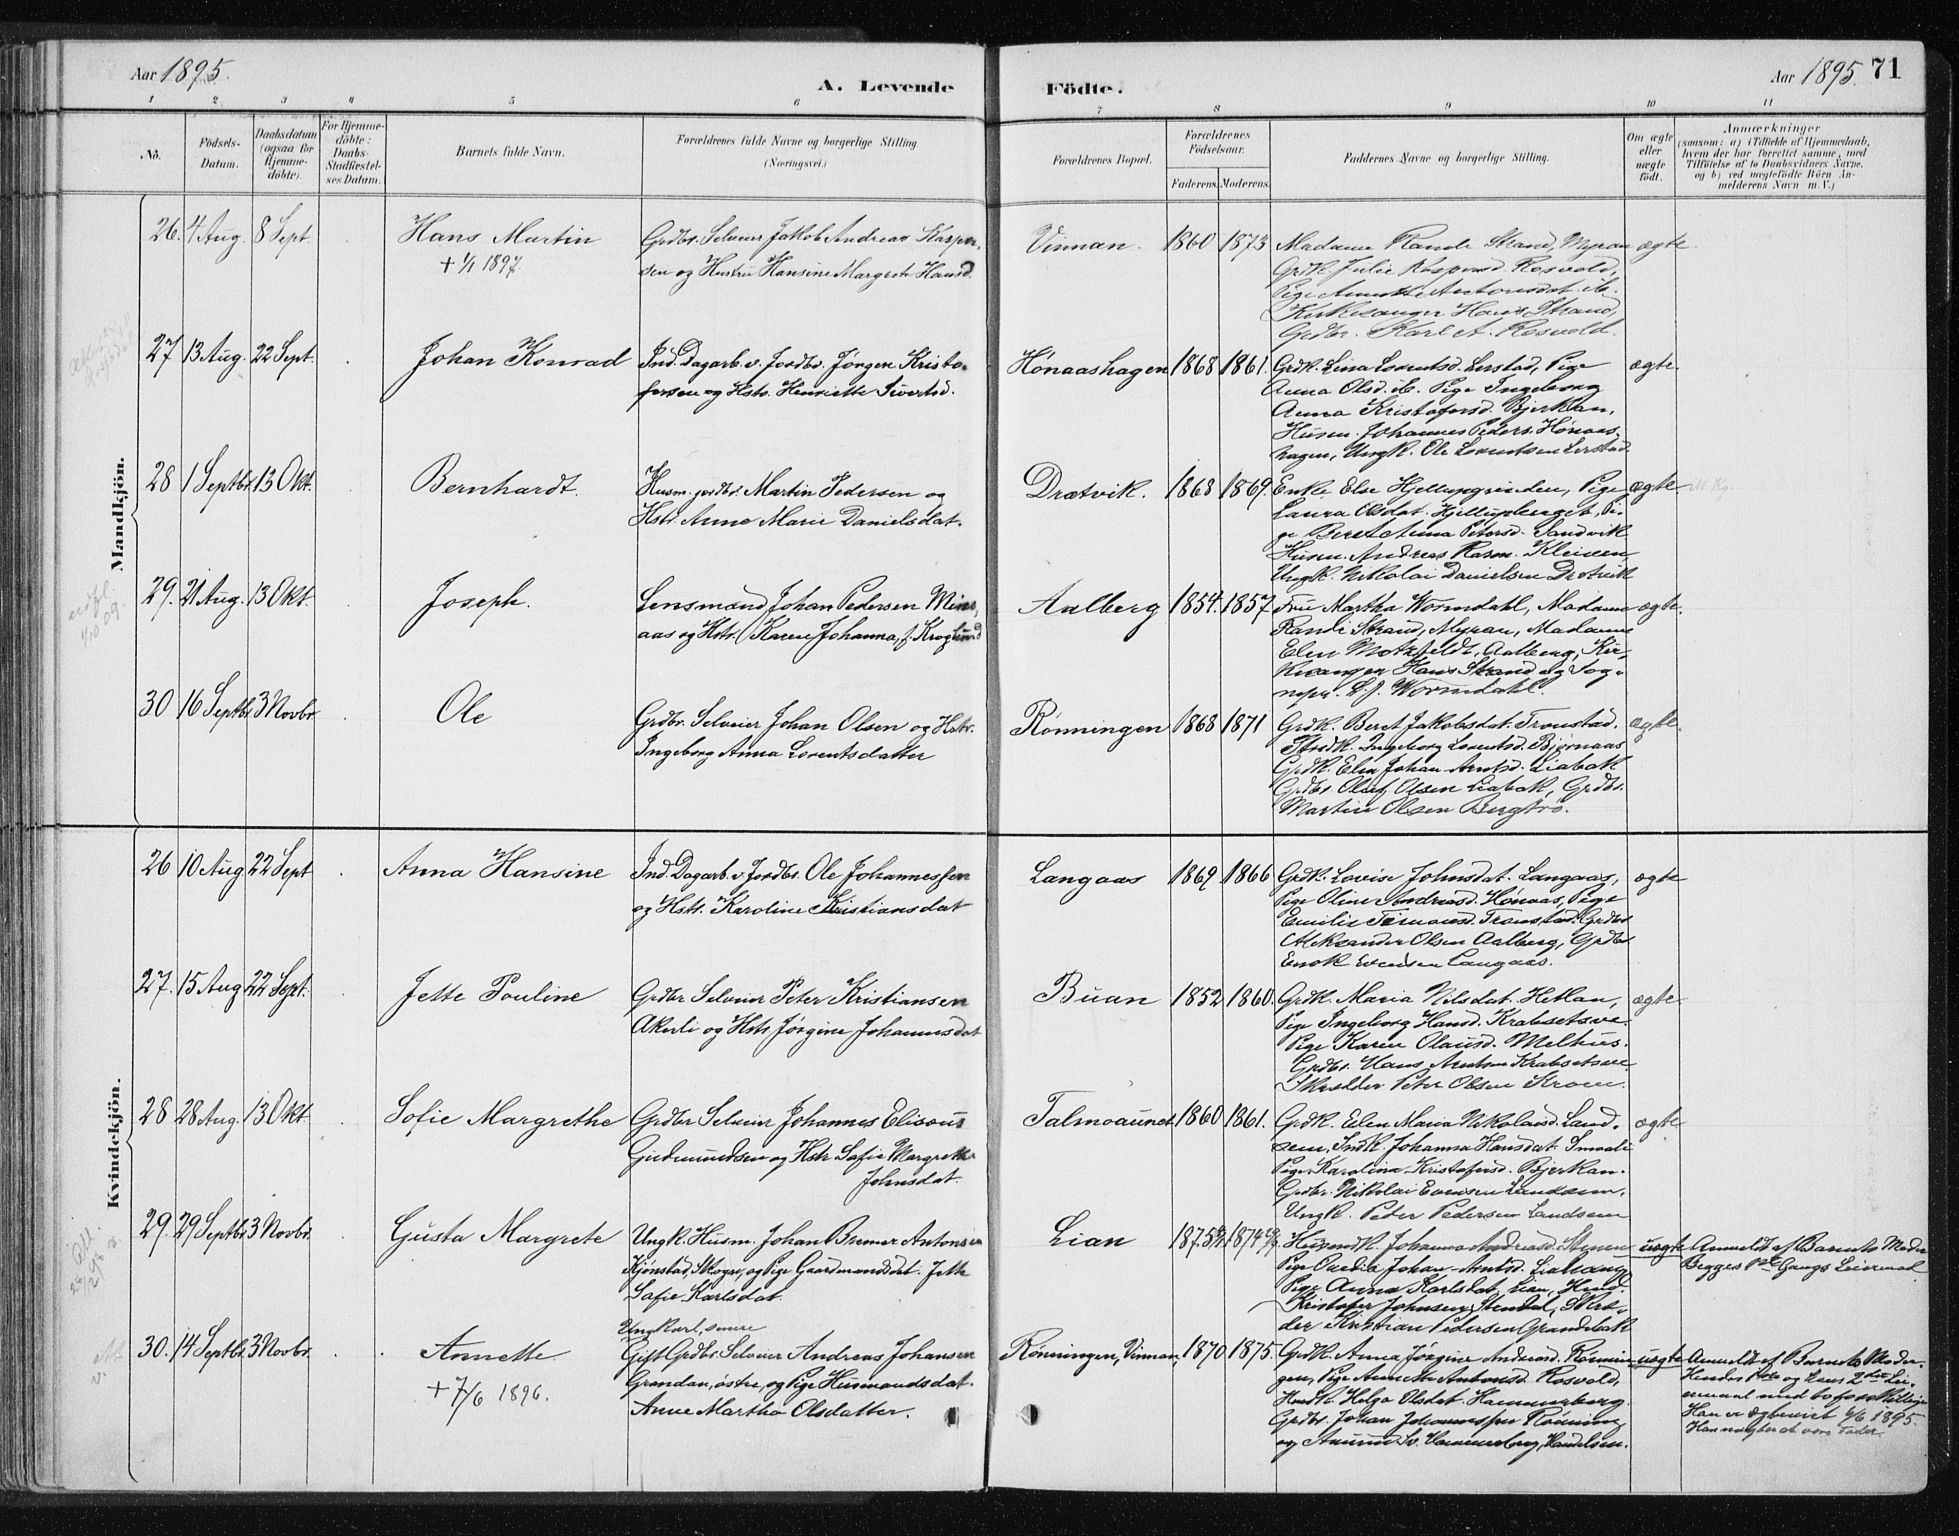 Aar 1895.
A. Levende Födte.
Aar 1895. 71
1 2 3 4 5 6 7 8 9 10 11
No.
Födsels-
Datum.
Daabsdatum
(ogsaa for
Hjemme-
döbte).
For Hjemme-
döbte:
Daabs-
Stadfæstel-
ses Datum.
Barnets fulde Navn.
Forældrenes fulde Navne og borgerlige Stilling
(Næringsvei.)
Forældrenes Bopæl.
Forældrenes
Födselsaar.
Faderens. Moderens.
Faddernes Navne og borgerlige Stilling.
Om ægte
eller
uægte
födt.
Anmærkninger
(saasom: a) i Tilfælde af Hjemmedaab,
hvem der har forrettet samme, med
Tilföielse af to Daabsvidners Navne,
og b) ved uægtefödte Börn An-
melderens Navn m. V.)
Mandkjön.
26. 4 Aug. 8 Sept.
Hans Martin
+ 1/1 1897.
Grdbr. Selveier Jakob Andreas Kasper-
sen og Hustru Hansine Margrete Hansd.
Vinnan. 1860 1873
Madame Rande Strand, Myran
Grdk. Julie Kaspersd. Rosvold,
Pige Annette Antonsdat. ib.
Kirkesanger Hans Strand,
Grdbr. Karl A. Rosvold.
ægte.
27 13 Aug. 22 Sept.
Johan Konrad
Ind. Dagarb. v. Jordbr. Jørgen Kristo-
fersen og Hstr. Henriette Sivertsd.
Hønaashagen 1868 1861.
Grdk. Lina Lorentsd. Lerstad, Pige
Anna Olsd. ib. Pige Ingeborg
Anna Kristofersd. Bjerkan,
Husm. Johannes Peders. Hønaas-
hagen, Ungk. Ole Lorentsen Lerstad.
ægte.
28 1 Septbr. 13 Okt.
Bernhardt.
Husm. jordbr. Martin Pedersen og
Hstr. Anne Marie Danielsdat.
Drætvik. 1868 1869.
Enke Else Hjellupgrinden, Pige
Laura Olsdat. Hjellupberget, Pi-
ge Beret Anna Petersd. Sandvik
Husm. Andreas Rasm. Kleiven,
Ungk. Nikolai Danielsen Drætvik
ægte
29. 21 Aug. 13 Okt.
Joseph.
Lensmand Johan Pedersen Min-
aas og Hstr. Karen Johanna, f. Kroglund
Aalberg 1854. 1857.
Frue Martha Wormdahl, Madame
Randi Strand, Myran, Madame
Elen Motzfeldt, Aalberg, Kir-
kesanger Hans Strand og Sog-
nepr. L. J. Wormdahl.
ægte.
30 16 Septbr. 3 Novbr.
Ole
Grdbr. Selveier Johan Olsen og Hstr.
Ingeborg Anna Lorentsdatter
Rønningen 1868 1871
Grdk. Beret Jakobsdat. Tronstad.
Ingeborg Lorentsd. Bjørnaas
Grdk. Elen Johan-Arntsd. Liabak
Grdbr. Oluf Olsen Liabak, Grdbr.
Martin Olsen Bergtrø.
ægte.
Kvindekjön.
26 10 Aug 22 Sept
Anna Hansine
Ind. Dagarb. v. Jordbr. Ole Johannessen
og Hstr. Karoline Kristiansdat
Langaas 1869 1866
Grdk. Lovise Johnsdat. Langaas,
Pige Oline Andreasd. Hønaas, Pige
Emilie Tronstad. Grdbr
Aleksander Olsen Aalberg, Grdbr
Enok Evensen Langaas.
ægte
27. 15 Aug 22 Sept.
Jette Pouline
Grdbr Selveier Peter Kristiansen
Akerli og Hstr Jørgine Johannesdat
Buan 1852 1860.
Grdk. Maria Nilsdat. Hetlan,
Pige Ingeborg Hansd. Krabsetsve.
Pige Karen Olausd. Melhus.
Grdbr. Hans Arntsen Krabsetsve
Skrædder Peter Olsen Kroen.
ægte
28 28 Aug. 13 Okt
Sofie Margrethe
Grdbr Selveier Johannes Elisæus
Gudmundsen og Hstr Sofie Margrethe
Johnsdat.
Talmoaunet 1860 1861.
Grdk. Elen Maria Nikolaisd. Land-
sem, Indk. Johanna Hansdat. Smoli
Pige Karolina Kristofersd. Bjerkan.
Grdbr. Nikolai Evensen Landsem.
Ungk. Peder Pedersen Landsem
ægte
29. 29 Septbr 3 Novbr.
Gusta Margrete
Ungk. Husm. Johan Bremer Antonsen
Kjønstad, Skogn, og Pige Gaardmandsdat. Jette
Sofie Karlsdat.
Lian 1875 1874
Husmdk. Johanna Andreasd. Stenen
Pige Johan-Arntsd. Liavang
Pige Anna Karlsdat, Lian,
Kristofer Johnsen Stendal, Skræd-
der Kristian Pedersen Grandebak
uægte
Anmeldt af Barnets Moder
Begges 1ste Gangs Leiermaal
30. 14 Septbr 3 Novbr.
Annette.
+ 7/6 1896.
Ungkarl, senere
Gift Grdbr. Selveier Andreas Johansen
Grandan, østre, og Pige Husmandsdat.
Anne Martha Olsdatter.
Rønningen, Vinnan, 1870 1875.
Grdk. Anna Jørgine Andreasd. Rønnin-
gen, Pige Annette Antonsd. Rosvold,
Husmk. Helga Olsdat. Hammerberg.
Grdbr. Johan Johannessen Rønning
og Hammerberg, Handelsm.
uægte
Anmeldt af Barnets Moder.
Hendes 1ste og hans 2det Lei-
ermaal med to forskjellige
Han er ægteviet 6/6 1895.
Han nægter at være Fader.